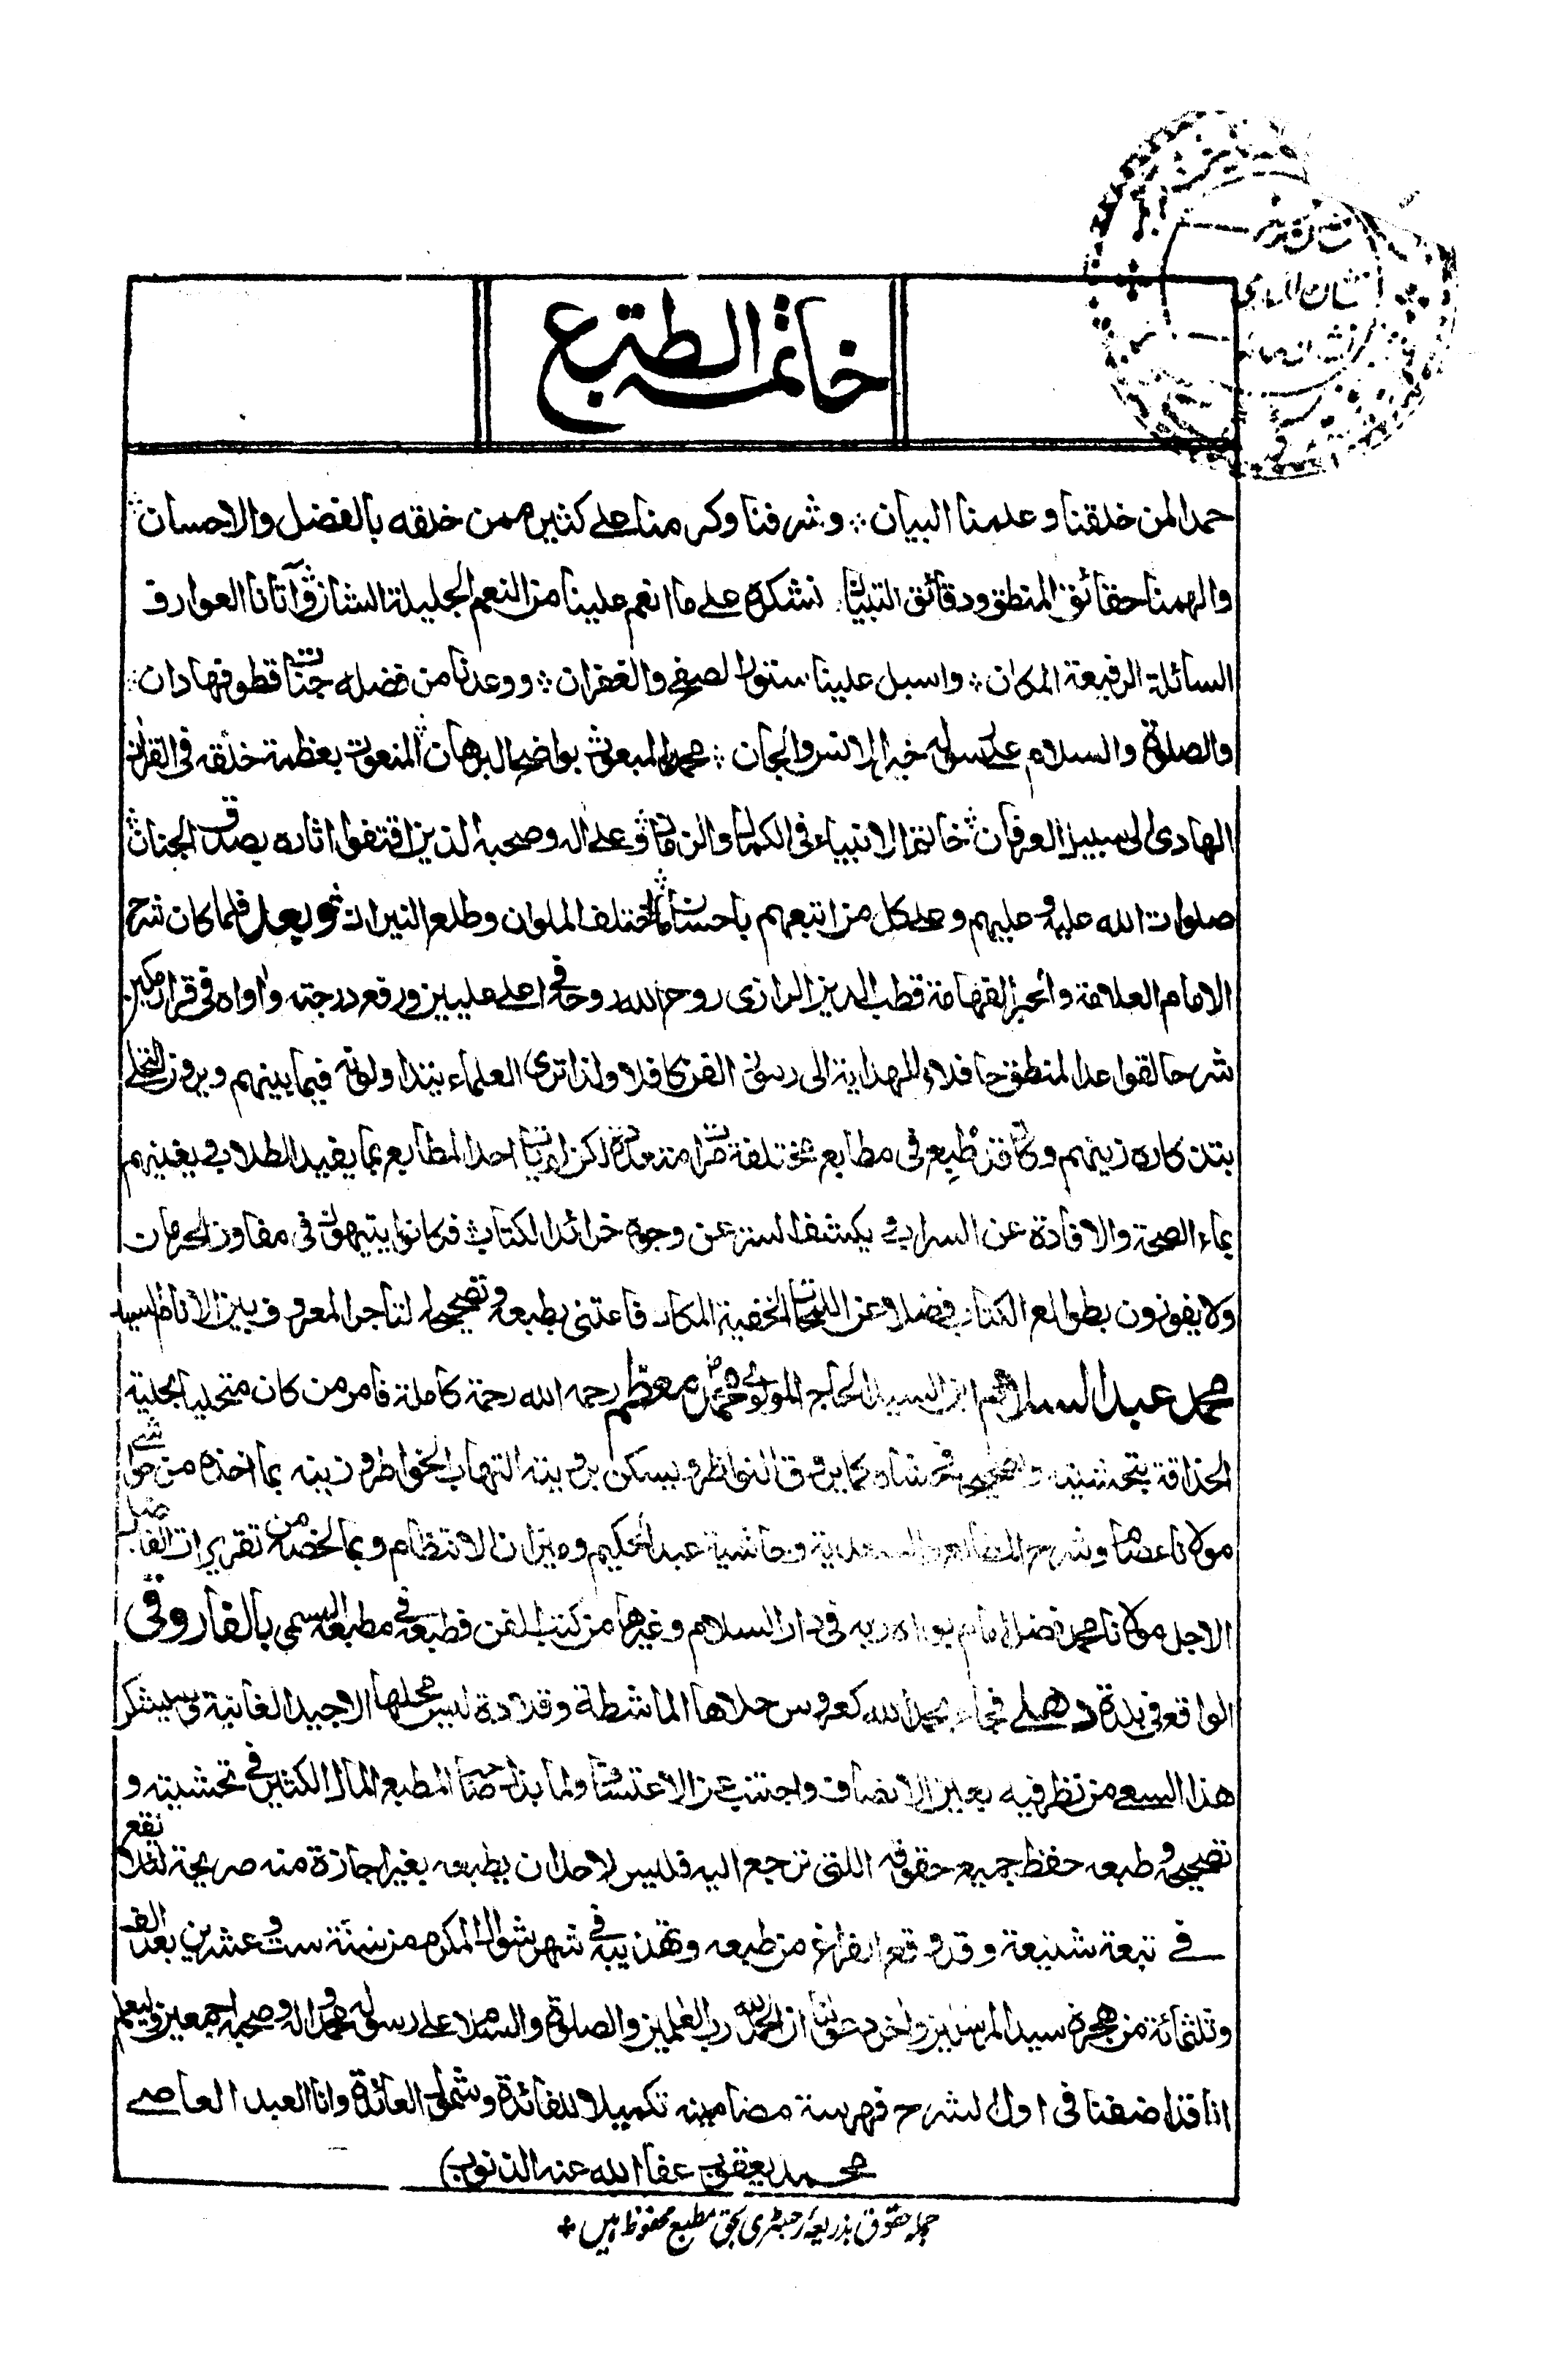 خاتمة الطبع
حمدا لمن خلقنا وعلمنا البيان ؞ وشرفنا وكرمنا على كثير ممن خلقه بالفضل والاحسان
والهمنا حقائق المنطق ودقائق التبيان نشكره على ما انعم علينا من النعم الجليلة الشان وآتانا العوارف
السائلة الرفيعة المكان ؞ واسبل علينا ستور الصفح والغفران ؞ ووعدنا من فضله جنتا قطوفها دان ؞
والصلوة والسلام على رسوله خير الانس والجان ؞ محمد المبعوث بواضح البرهان المنعوت بعظمة خلقه فى القران
الهادى الى سبيل العرفان خاتم الانبياء فى الكمال والزمان وعلى اله وصحبه الذين اقتفوا اثاره بصدق الجنان
صلوات الله عليه وعليهم وعلى كل من اتبعهم باحسان ما اختلف الملوان وطلع النيران وبعد فلما كان شرح
الامام العلامة والحبر الفهامة قطب الدين الرازى روح الله روحه فى اعلى عليين ورفع درجته واواه فى قرار مكين
شرحا لقواعد المنطق حافلا وللهداية الى رسوم الفن كافلا ولذا ترى العلماء يتداولونه فيما بينهم ويرون التحلى
بتذكاره زينهم وكان قد طبع فى مطابع مختلفة مرات متعددة لكن لم يات احد المطابع بما يفيد الطلاب ويغنيهم
بماء الصحة والافادة عن السراب ويكشف الستر عن وجوه خرائد الكتاب فكانوا يتيهون فى مفاوز الحرمات
ولا يفوزون بطوالع الكتاب فضلا عن اللمحات الخفية المكان فاعتنى بطبعه وتصحيحه التاجر المعروف بين الانام السيد
محمد عبد السلام ابن السيد الحاج المولوى محمد معظم رحمه الله رحمة كاملة فامر من كان متحليا بحلية
الحذاقة بتحشيته وتصحيحه فحشاه بما يروق النواظر ويسكن برويته التهاب الخواطر وزينه بما اخذه من حواشى
مولانا عصام وشرح المطالع والسعدية وحاشية عبد الحكيم وميزان الانتظام وبما لخصه من تقريرات الفاضل
الاجل مولانا محمد فضل امام بواه ربه فى دار السلام وغيرها من كتب الفن فطبعه فى مطبعه المسمى بالفاروقى
الواقع فى بلدة دهلى فجاء بحمد الله كعروس حلاها الماشطة وقلادة ليس محلها الا جيد الغانية وسيشكر
هذا السعى من نظر فيه بعين الانصاف واجتنب عن الاعتساف ولما بذل صاحب المطبع المال الكثير فى تحشيته و
تصحيحه وطبعه حفظ جميع حقوقه اللتى ترجع اليه فليس لاحد ان يطبعه بغير اجازة منه صريحة لئلا يقع
فى تبعة شنيعة وقد وقع الفراغ من طبعه وتهذيبه فى شهر شوال المكرم من سنة ست وعشرين بعد الف
وثلثمائة من هجرة سيد المرسلين واخر دعوانا ان الحمد لله رب العلمين والصلوة والسلام على رسوله محمد واله وصحبه اجمعين وليعلم
انا قد اضفنا فى اول الشرح فهرسة مضامينه تكميلا للفائدة وشمولا للعائدة وانا العبد العاصى
محمد يعقوب عفا الله عنه الذنوب
جملہ حقوق بذریعۂ رجسٹری بحق مطبع محفوظ ہیں +